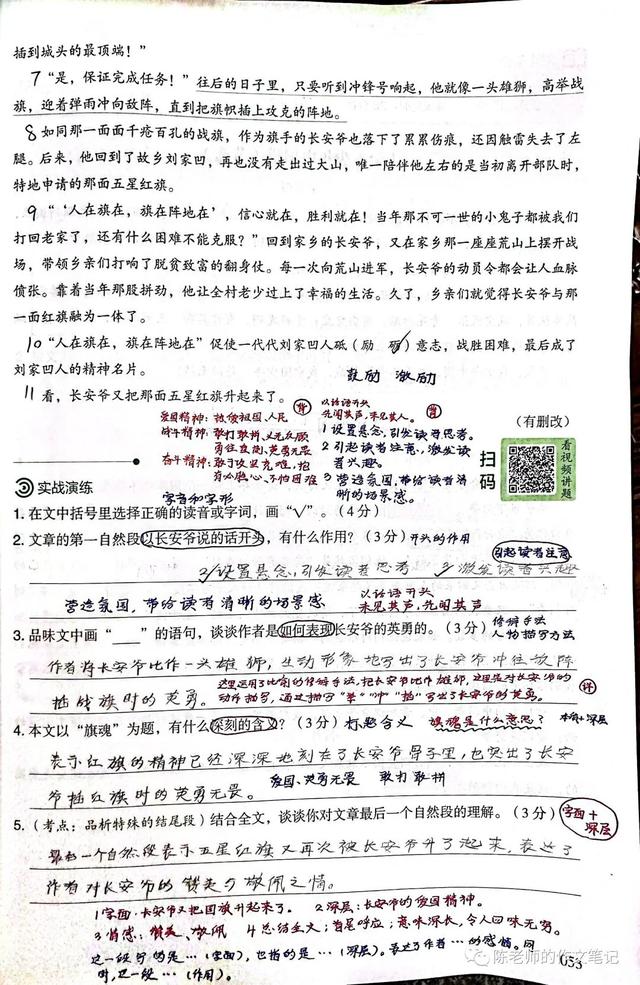 插到城头的最顶端！”
7 “是，保证完成任务！”往后的日子里，只要听到冲锋号响起，他就像一头雄狮，高举战
旗，迎着弹雨冲向敌阵，直到把旗帜插上攻克的阵地。
8 如同那一面面千疮百孔的战旗，作为旗手的长安爷也落下了累累伤痕，还因触雷失去了左
腿。后来，他回到了故乡刘家凹，再也没有走出过大山，唯一陪伴他左右的是当初离开部队时，
特地申请的那面五星红旗。
9 “‘人在旗在，旗在阵地在’，信心就在，胜利就在！当年那不可一世的小鬼子都被我们
打回老家了，还有什么困难不能克服？”回到家乡的长安爷，又在家乡那一座座荒山上摆开战
场，带领乡亲们打响了脱贫致富的翻身仗。每一次向荒山进军，长安爷的动员令都会让人血脉
偾张。靠着当年那股拼劲，他让全村老少过上了幸福的生活。久了，乡亲们就觉得长安爷与那
一面红旗融为一体了。
10 “人在旗在，旗在阵地在”促使一代代刘家凹人砥（励 砺）意志，战胜困难，最后成了
刘家凹人的精神名片。
鼓励 激励
11 看，长安爷又把那面五星红旗升起来了。
（有删改）
爱国精神：热爱祖国、人民
战斗精神：敢打敢拼、义无反顾
勇往直前、英勇无畏
奋斗精神：敢于攻坚克难，抱
有必胜心、不怕困难
以话语开头
先闻其声，未见其人。
1 设置悬念，引发读者思考。
2 引起读者注意，激发读
者兴趣。
3 营造氛围，带给读者清
晰的场景感。
扫码
看视频讲题
实战演练
字音和字形
1. 在文中括号里选择正确的读音或字词，画“√”。（4分）
2. 文章的第一自然段以长安爷说的话开头，有什么作用？（3分）开头的作用
引起读者注意
设置悬念，引发读者思考 激发读者兴趣
营造氛围，带给读者清晰的场景感
以话语开头
未见其声，先闻其声
3. 品味文中画“____”的语句，谈谈作者是如何表现长安爷的英勇的。（3分）
修辞手法
人物描写方法
作者将长安爷比作一头雄狮，生动形象地写出了长安爷冲往敌阵
插战旗时的英勇。
这里运用了比喻的修辞手法，把长安爷比作雄狮，这里是对长安爷的
动作描写，通过描写“举”“冲”“插”写出了长安爷的英勇。
4. 本文以“旗魂”为题，有什么深刻的含义？（3分）标题含义
旗魂是什么意思？
表示红旗的精神已经深深地刻在了长安爷骨子里，也突出了长安
爷插红旗时的英勇无畏。
爱国、英勇无畏 敢打敢拼
5. （考点：品析特殊的结尾段）结合全文，谈谈你对文章最后一个自然段的理解。（3分）
字面+
深层
最后一个自然段表示五星红旗又再次被长安爷升了起来，表达了
作者对长安爷的赞美与敬佩之情。
1 字面：长安爷又把国旗升起来了。 2 深层：长安爷的爱国精神。
3 情感：赞美、敬佩 4 总结全文；首尾呼应；意味深长，令人回味无穷。
这一段写的是…（字面），也指的是…（深层）。表达了作者…的感情。同
时，这一段…（作用）。
陈老师的作文笔记
053